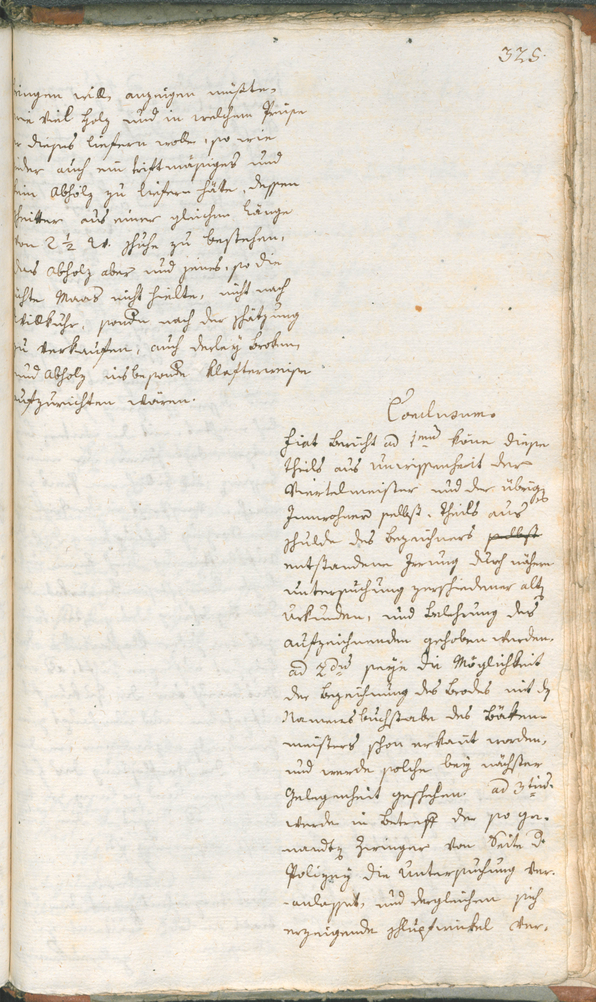 325.
ringen will, anzeigen müßte.
wie viel Holz und in welchem Preise
er dieses liefern wolle, so wie
jeder auch ein triftmäsiges und
kein Abholz zu liefern häte, dessen
scheitter aus einer gleichen Länge
von 2 ½ W. schuhe zu bestehen,
das Abholz aber und jenes, so die
ächte Maas nicht hielte, nicht nach
willkühr, sonder nach der schätzung
zu verkaufen, auch derley Broken
und Abholz insbesonder klafterweise
aufzurichten wären.
Conclusum.
Fiat Bericht ad 1mum könne diese
theils aus unwissenheit der
Viertelmeister und der übrigen
Innwohner selbst, theils aus
schulde des Bezeichners selbst
entstandene Irrung durch nähere
untersuchung verschiedener alten
Urkunden, und Belehrung des
aufzeichnenden gehoben werden.
ad 2dum seye die Möglichkeit
der Bezeichnung des Brodes mit den
Namensbuchstabe des Bäken-
meisters schon erkant worden,
und werde solche bey nächster
Gelegenheit geschehen. ad 3tium
werde in Betreff der so ge-
nandten Zeringer von Seite der
Polizey die Untersuchung ver-
anlasset, und dergleichen sich
erzeigende schlupfwinkel ver-